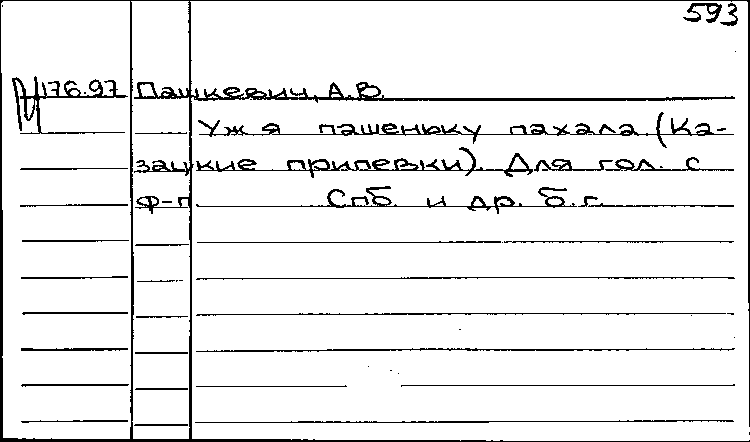 593
176.97 Пашкевич, А.В.
Уж я пашеньку пахала. (Ка-
зацкие припевки). Для гол. с
ф-п. Спб. и др. б.г.